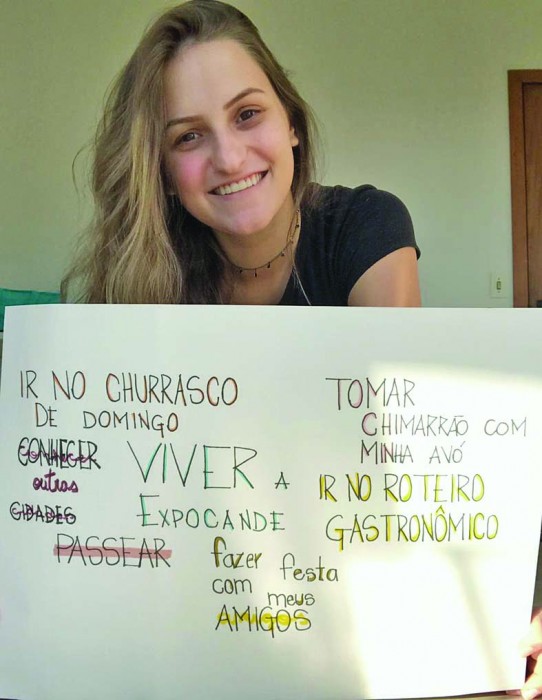 IR NO CHURRASCO
DE DOMINGO
CONHECER
outras
CIDADES
PASSEAR
VIVER A
EXPOCANDE
fazer festa
com meus
AMIGOS
TOMAR
CHIMARRÃO COM
MINHA AVÓ
IR NO ROTEIRO
GASTRONÔMICO